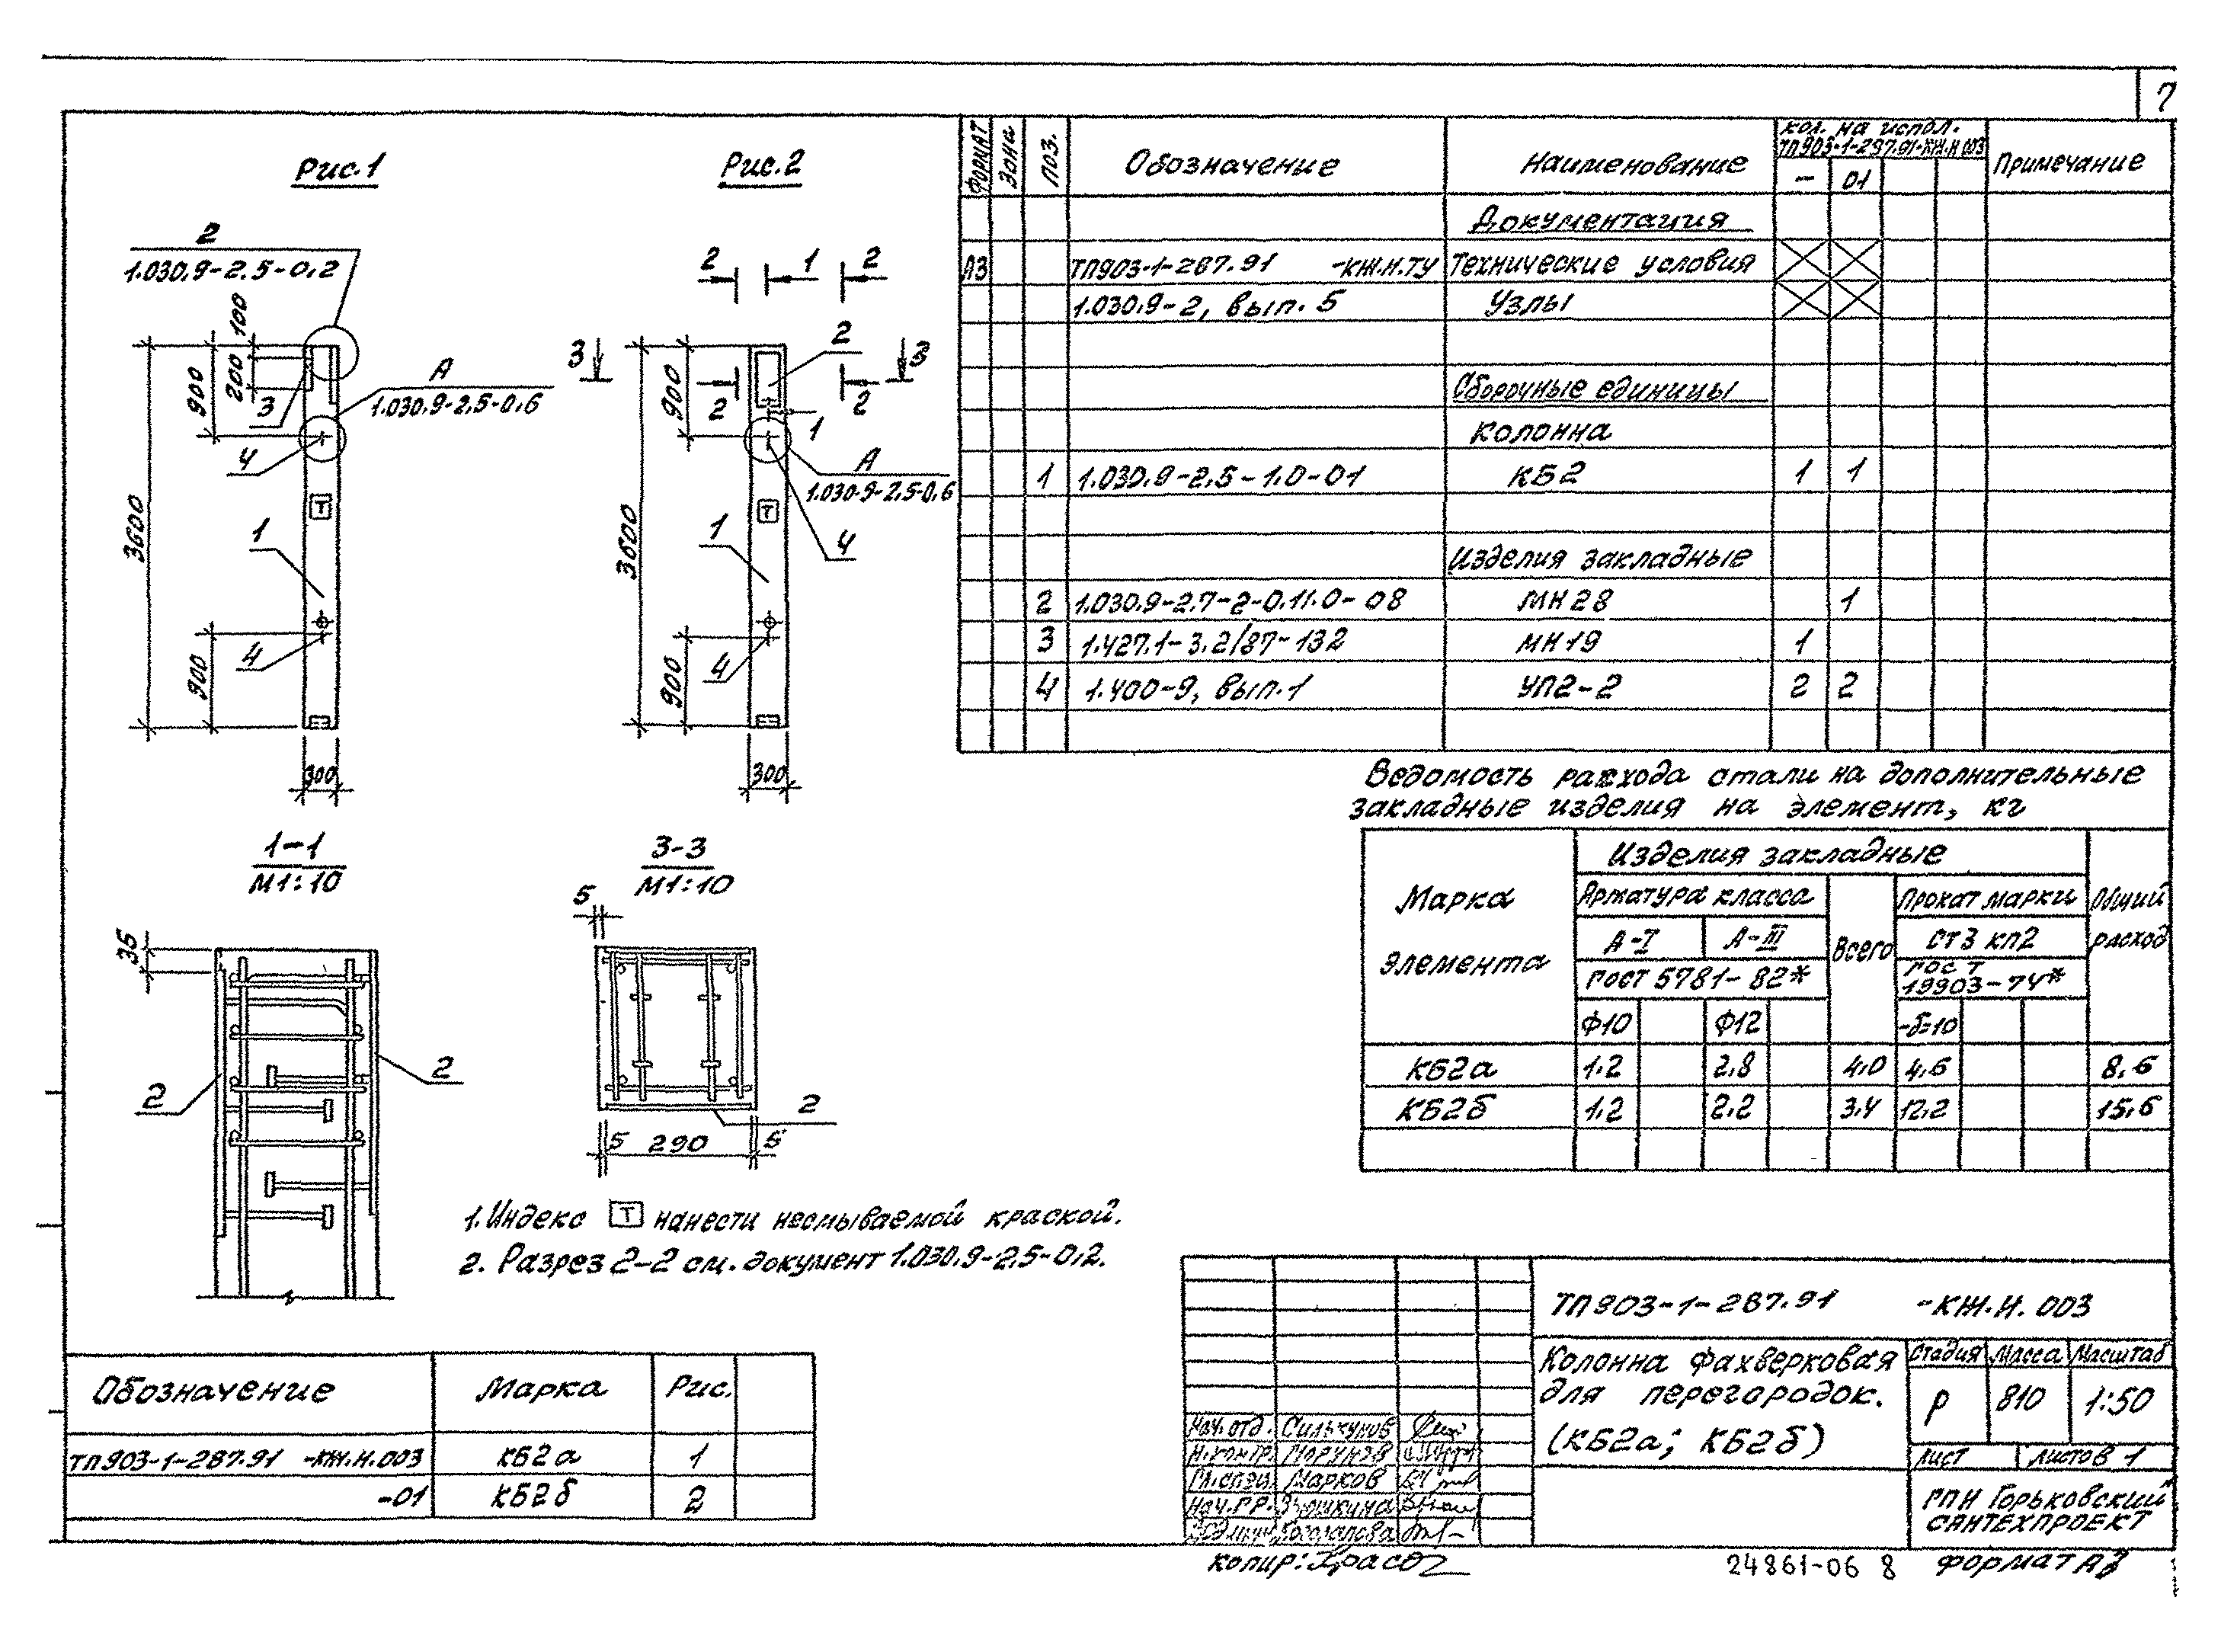 7
Рис.1
2
1.030.9-2.5-0.2
100
200
900
3
А
1.030.9-2.5-0.6
4
3600
Т
1
4
900
300
Рис.2
2 1 2
3 3
2
900
2 2
1
А
1.030.9-2.5-0.6
3600
Т
1
4
4
900
300
1-1
М1:10
35
2
2
3-3
М1:10
5
2
5 290 5
1. Индекс Т нанести несмываемой краской.
2. Разрез 2-2 см. документ 1.030.9-2.5-0.2.
Формат Зона Поз. Обозначение Наименование Кол. на испол. ТП903-1-287.91-КЖ.И.003 Примечание
- 01
Документация
А3 ТП903-1-287.91 -КЖ.И.ТУ Технические условия
1.030.9-2, вып. 5 Узлы
Сборочные единицы
Колонна
1 1.030.9-2.5-1.0-01 КБ2 1 1
Изделия закладные
2 1.030.9-2.7-2-0.11.0-08 МН28 1
3 1.427.1-3.2/87-132 МН19 1
4 1.400-9, вып.1 УП2-2 2 2
Ведомость расхода стали на дополнительные
закладные изделия на элемент, кг
Марка элемента
Изделия закладные
Арматура класса Всего Прокат марки Общий расход
А-I А-III Ст3 кп2
ГОСТ 5781-82* ГОСТ 19903-74*
Ф10 Ф12 -δ=10
КБ2а 1.2 2.8 4.0 4.6 8.6
КБ2б 1.2 2.2 3.4 12.2 15.6
Обозначение Марка Рис.
ТП903-1-287.91 -КЖ.И.003 КБ2а 1
-01 КБ2б 2
ТП903-1-287.91 -КЖ.И.003
Колонна фахверковая
для перегородок.
(КБ2а; КБ2б)
Стадия Масса Масштаб
Р 810 1:50
Лист Листов 1
ГПИ Горьковский
Сантехпроект
Нач. отд.
Н.контр.
Гл.спец. Марков
Нач.гр. Зюшкина
копир:
24861-06 8
Формат А3